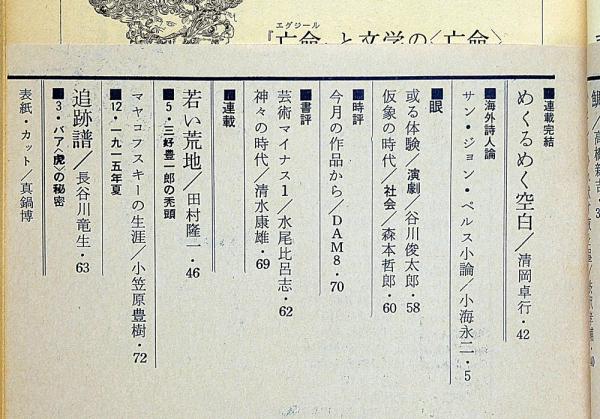 エグジール
『亡命』と文学の〈亡命〉
■連載完結
めくるめく空白／清岡卓行・42
■海外詩人論
サン・ジョン・ペルス小論／小海永二・5
■眼
或る体験／演劇／谷川俊太郎・58
仮象の時代／社会／森本哲郎・60
■時評
今月の作品から／DAM8・70
■書評
芸術マイナス1／水尾比呂志・62
神々の時代／清水康雄・69
■連載
若い荒地／田村隆一・46
■5・三好豊一郎の禿頭
マヤコフスキーの生涯／小笠原豊樹・72
■12・一九一五年夏
追跡譜／長谷川竜生・63
■3・バア〈虎〉の秘密
表紙・カット／真鍋博